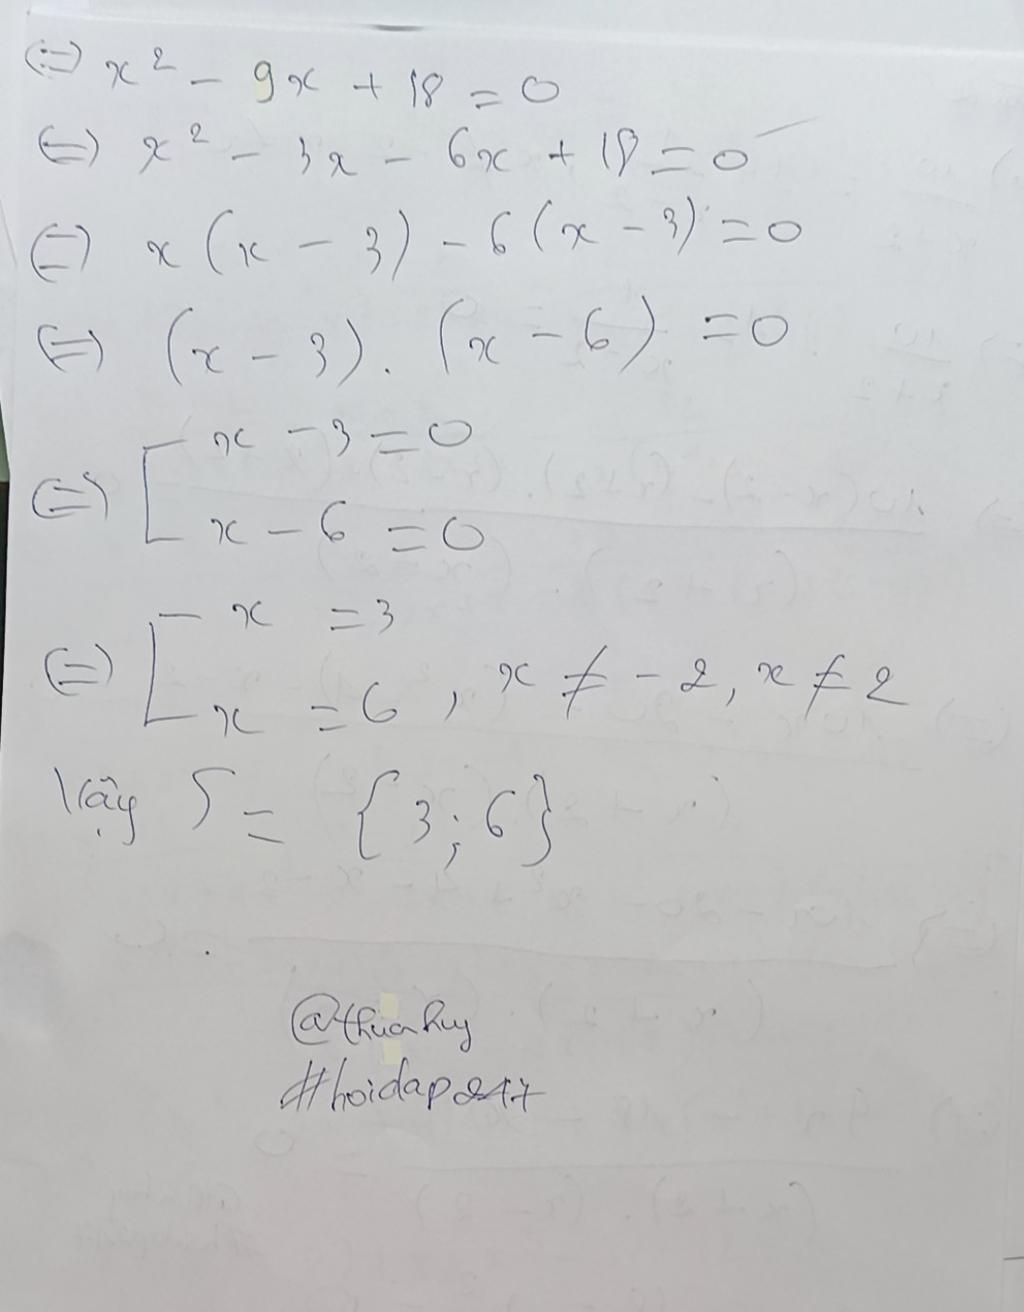 (=) x² - 9x + 18 = 0
(=) x² - 3x - 6x + 18 = 0
(=) x (x - 3) - 6 (x - 3) = 0
(=) (x - 3). (x - 6) = 0
(=) [ x - 3 = 0
x - 6 = 0
(=) [ x = 3
x = 6 , x ≠ -2, x ≠ 2
Vậy S = {3; 6}
@thuahuy
#hoidap247